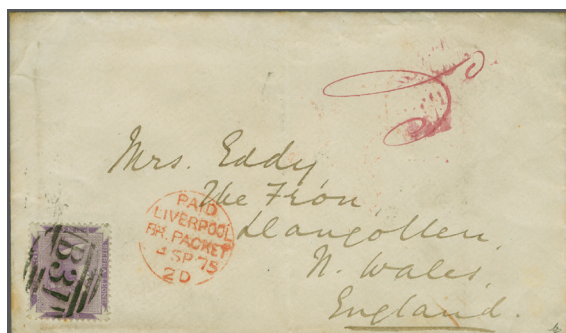 Mrs. Eddy
The Fron
Llangollen,
N. Wales,
England.
PAID
LIVERPOOL
BR. PACKET
4 SP 75
2D
B31